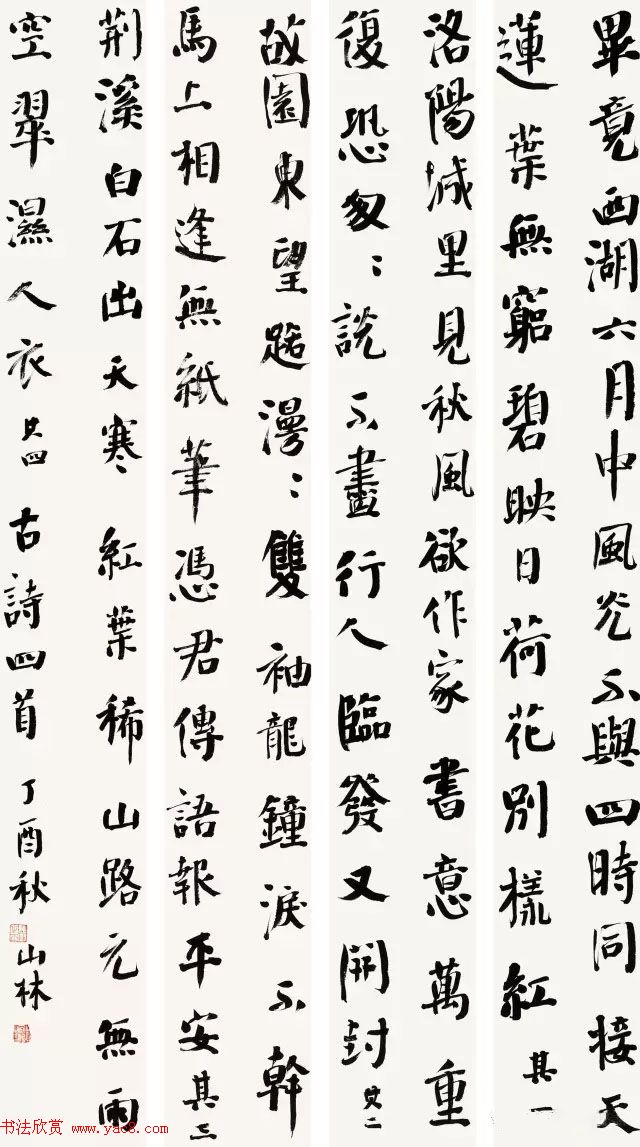 畢竟西湖六月中風光不與四時同接天
蓮葉無窮碧映日荷花別樣紅 其一
洛陽城里見秋風欲作家書意萬重
復恐匆〻說不盡行人臨發又開封 其二
故園東望路漫〻雙袖龍鐘淚不幹
馬上相逢無紙筆憑君傳語報平安 其三
荆溪白石出天寒紅葉稀山路元無雨
空翠濕人衣 其四 古詩四首 丁酉秋 山林
书法欣赏 www.yac8.com